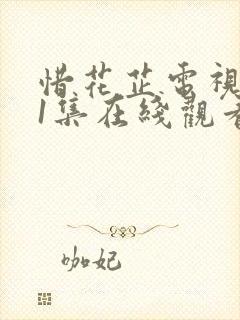 惜花芷電視
1集在綫觀看
咖妃